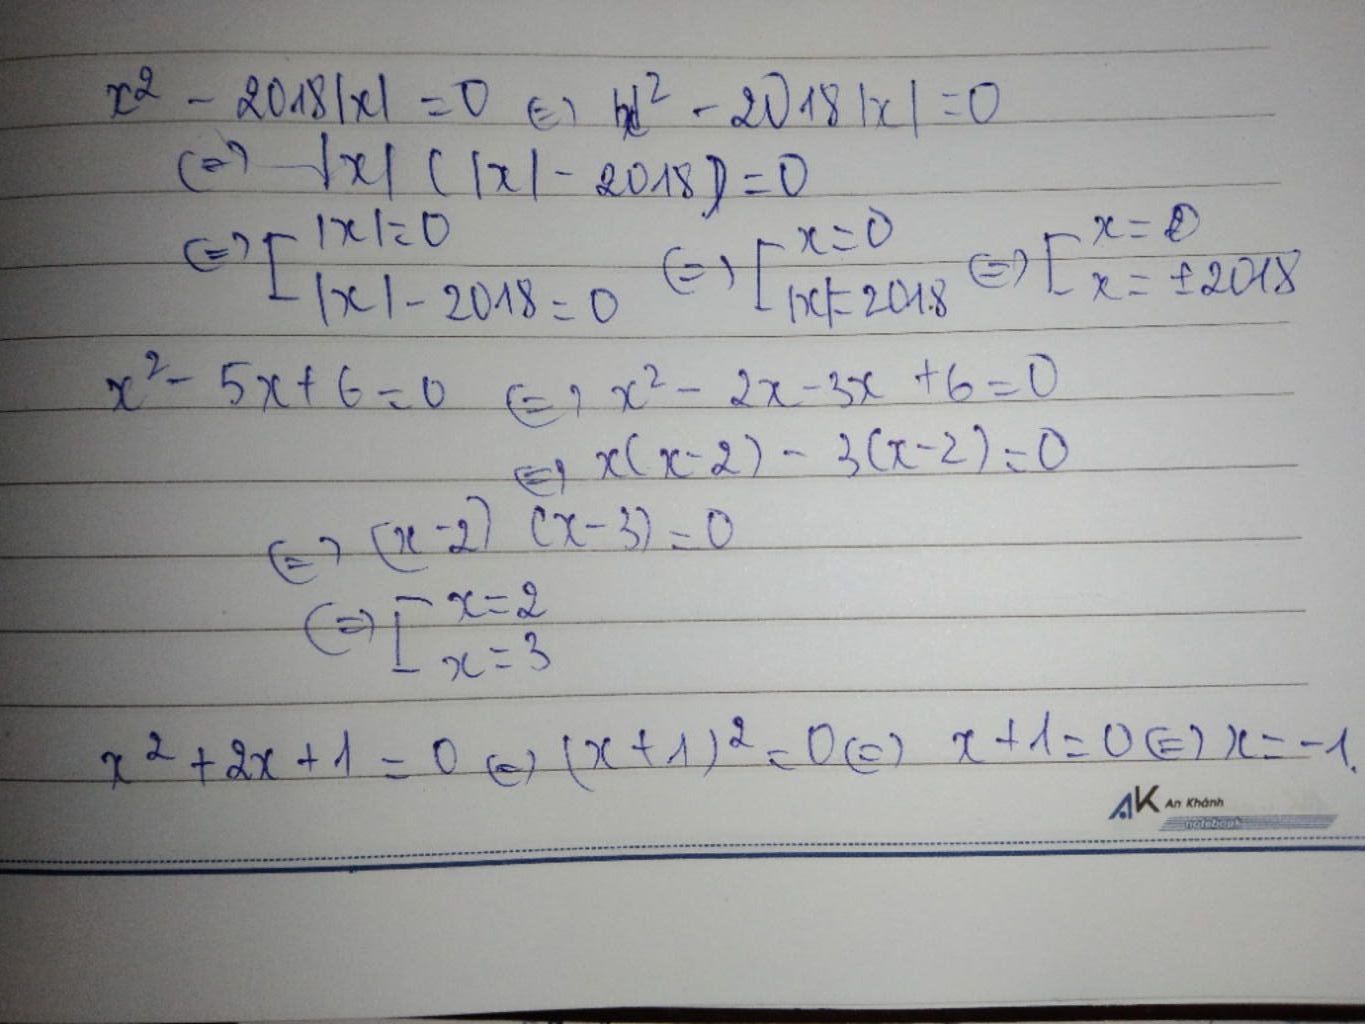 x² - 2018|x| = 0 ⇔ |x|² - 2018|x| = 0
⇔ |x| (|x| - 2018) = 0
⇔ [ |x| = 0 ⇔ [ x = 0 ⇔ [ x = 0
|x| - 2018 = 0 |x| = 2018 x = ±2018
x² - 5x + 6 = 0 ⇔ x² - 2x - 3x + 6 = 0
⇔ x(x-2) - 3(x-2) = 0
⇔ (x-2) (x-3) = 0
⇔ [ x = 2
x = 3
x² + 2x + 1 = 0 ⇔ (x+1)² = 0 ⇔ x+1 = 0 ⇔ x = -1.
AK An Khánh
notebook